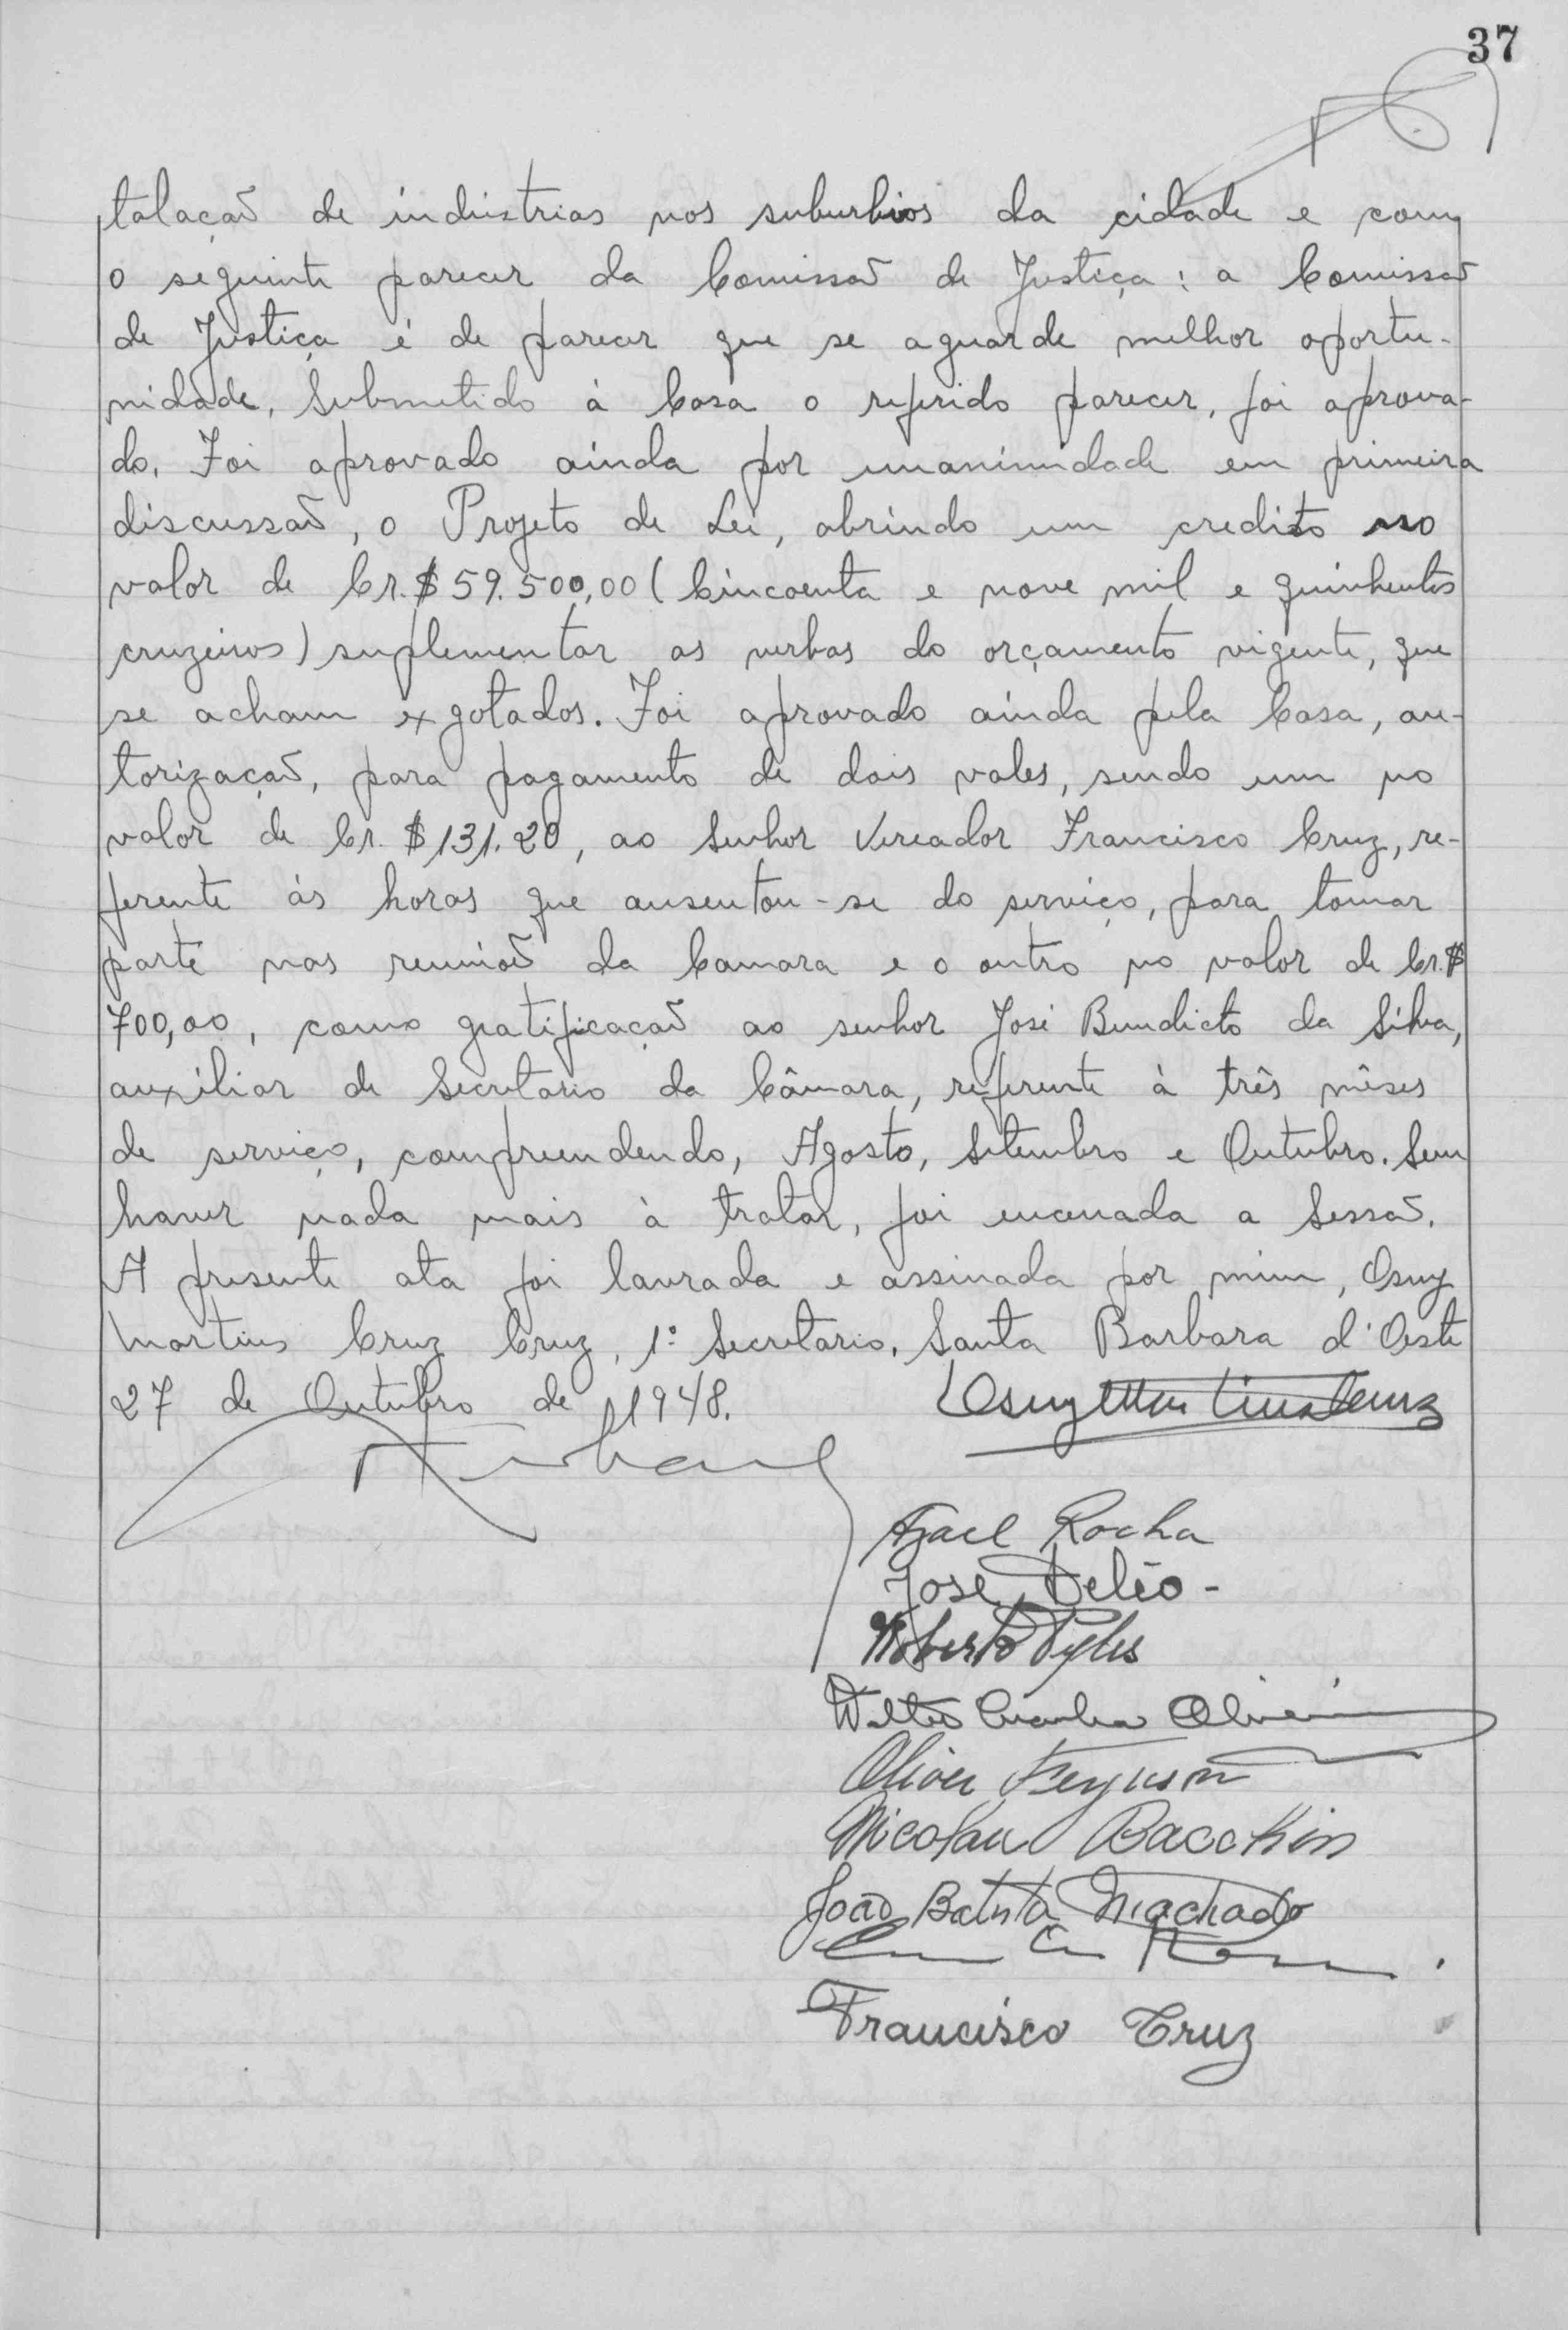 37
talação de indústrias nos suburbios da cidade e com
o seguinte parecer da Comissão de Justiça: a Comissão
de Justiça é de parecer que se aguarde melhor oportu-
nidade. Submetido à Casa o referido parecer, foi aprova-
do. Foi aprovado ainda por unanimidade em primeira
discussão, o Projeto de Lei, abrindo um credito no
valor de Cr.$ 59.500,00 (Cincoenta e nove mil e quinhentos
cruzeiros) suplementar as verbas do orçamento vigente, que
se acham exgotados. Foi aprovado ainda pela Casa, au-
torização, para pagamento de dois vales, sendo um no
valor de Cr. $131.20, ao Senhor Vereador Francisco Cruz, re-
ferente às horas que ausentou-se do serviço, para tomar
parte nas reunioẽ da Camara e o outro no valor de Cr.$
700,00, como gratificação ao senhor José Benedicto da Silva,
auxiliar de Secretario da Câmara, referente à três mêses
de serviço, compreendendo, Agosto, Setembro e Outubro. Sem
haver nada mais à tratar, foi encerrada a Sessão.
A presente ata foi lavrada e assinada por mim, Osny
Martins Cruz Cruz, 1º Secretario. Santa Barbara d'Oeste
27 de Outubro de 1948. Osny Martins Cruz
Azael Rocha
José Deléo -
Roberto Pyles
Walter Oliveira
Oliver Ferguson
Nicolau Bacchin
João Batista Machado
Francisco Cruz